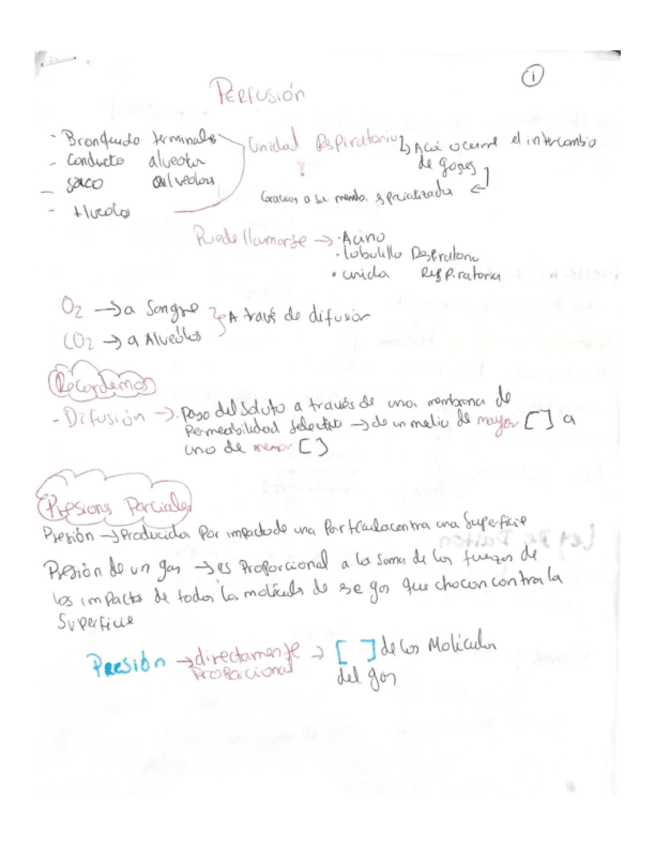 ①
PERFUSIÓN
- Bronqueolo terminales
- Conducto alveolar
- Saco alveolares
- Alveolos
Unidad Respiratoria
?
↳ Acá ocurre el intercambio
de gases
Gracias a su memb. especializada ←
Puede llamarse → · Acino
· Lobulillo Respiratorio
· unidad Respiratoria
O2 → a Sangre
CO2 → a Alveolos
} A través de difusión
Recordemos
- Difusión → · Paso del soluto a través de una membrana de
Permeabilidad Selectiva → de un medio de mayor [ ] a
uno de menor [ ]
Presiones Parciales
Presión → Producida Por impacto de una Partícula contra una Superficie
Presión de un gas → es Proporcional a la Soma de las fuerzas de
los impactos de todas las moléculas de ese gas que chocan contra la
Superficie
Presión → directamente Proporcional → [ ] de las Moléculas
del gas